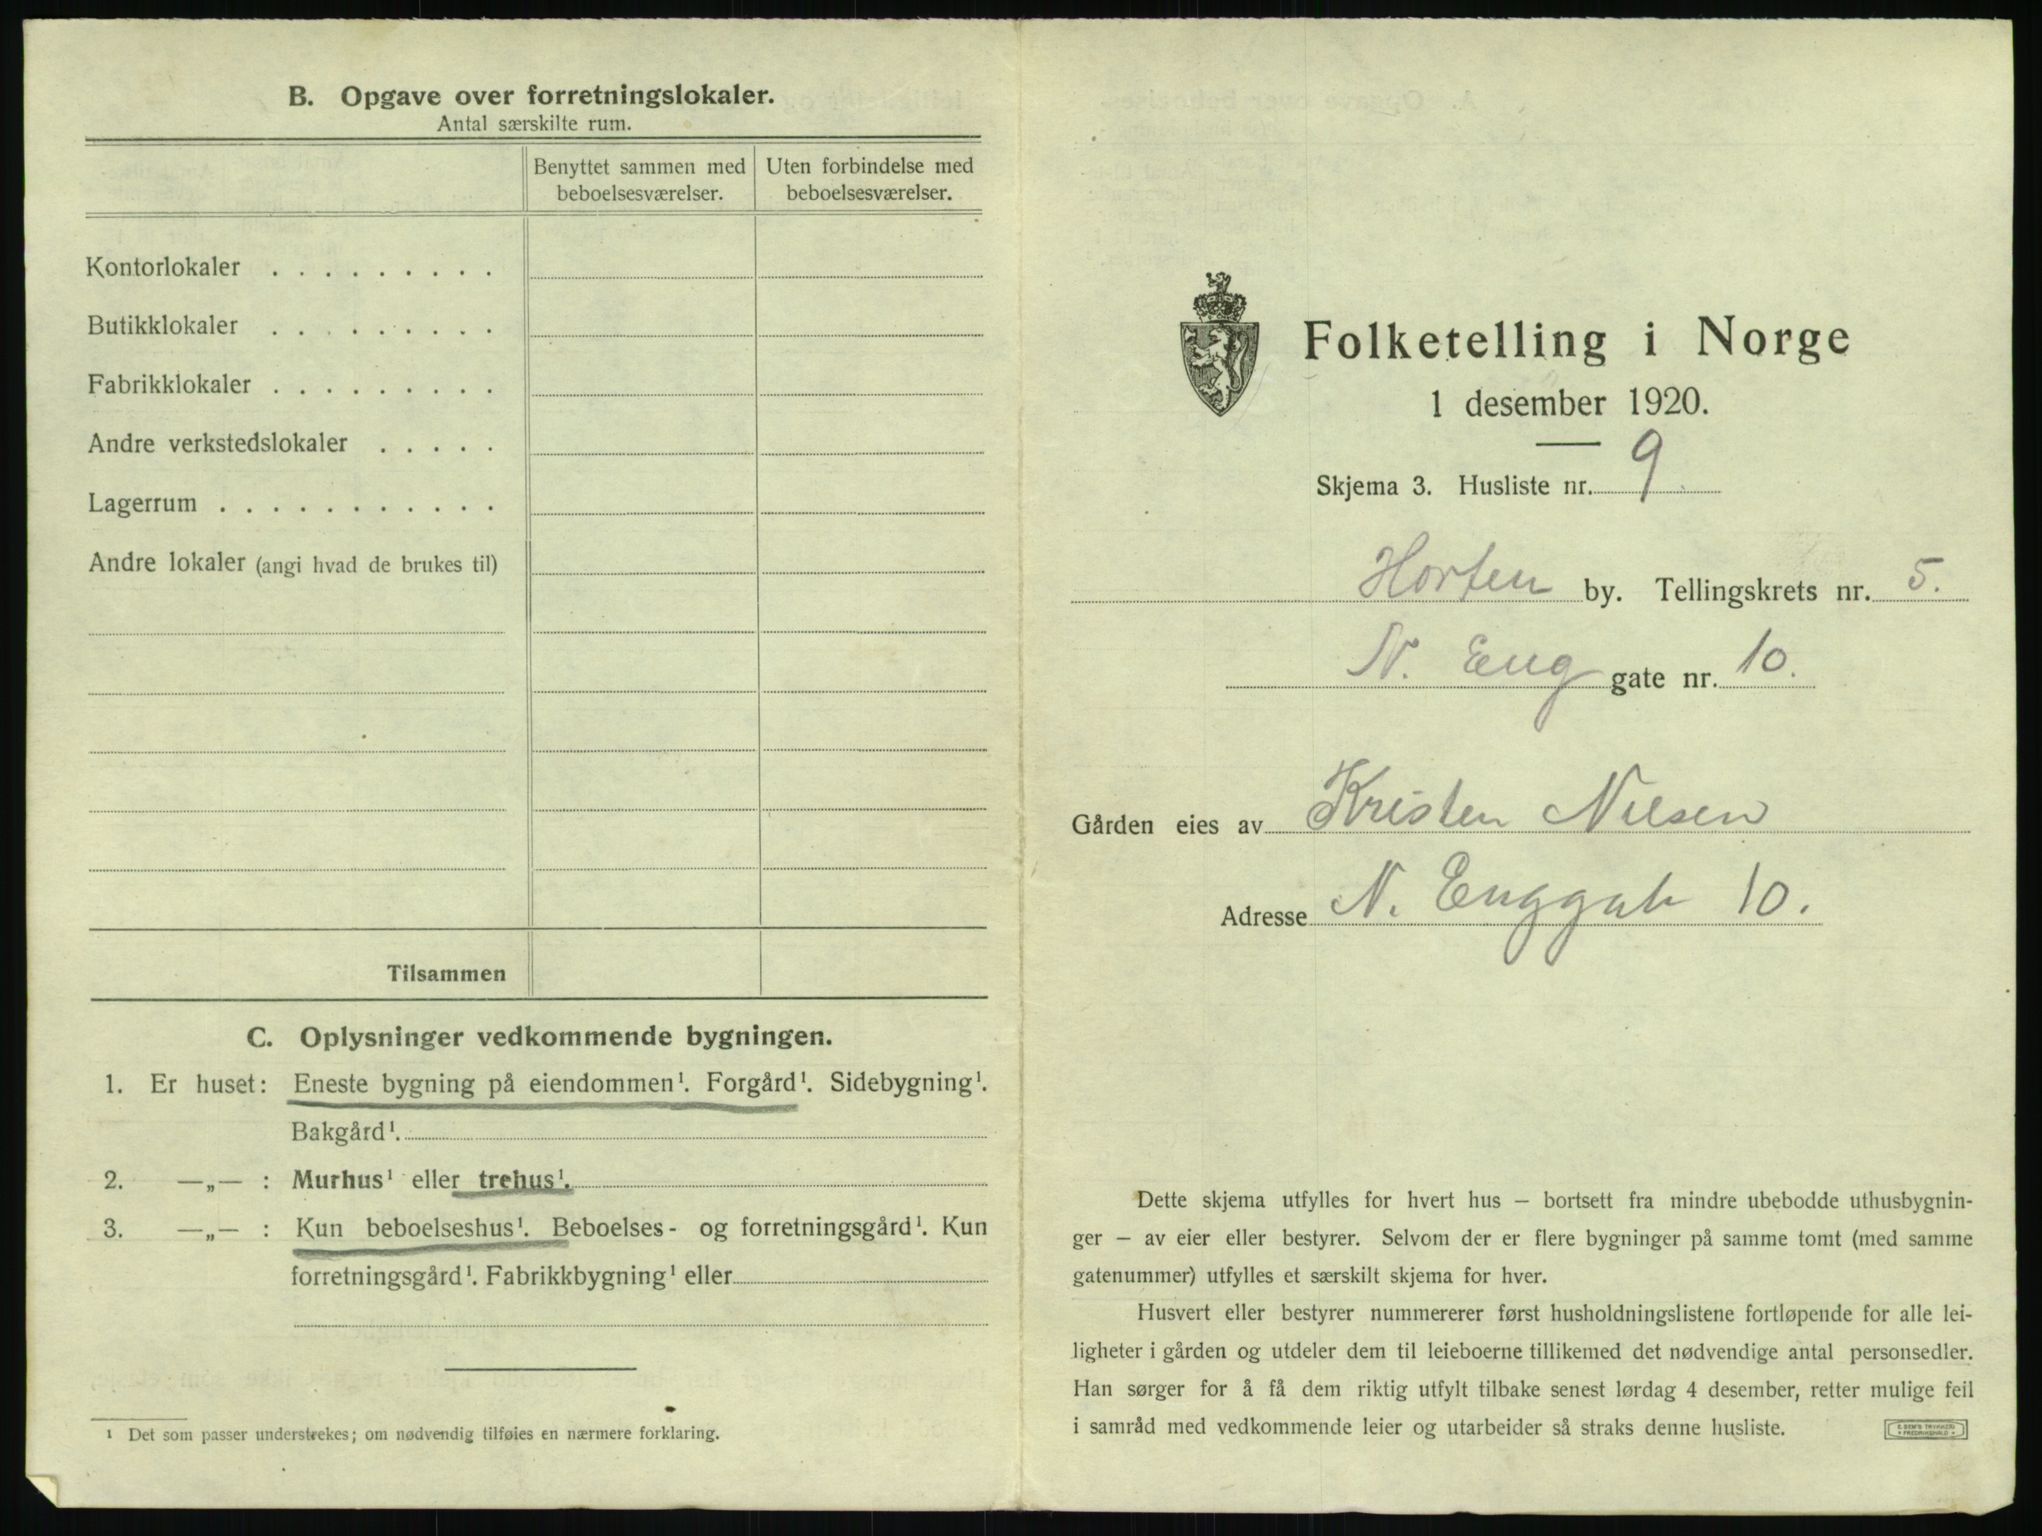 B. Opgave over forretningslokaler.
Antal særskilte rum.
Benyttet sammen med beboelsesværelser.
Uten forbindelse med beboelsesværelser.
Kontorlokaler . . . . . . . . .
Butikklokaler . . . . . . . . .
Fabrikklokaler . . . . . . . . .
Andre verkstedslokaler . . . . .
Lagerrum . . . . . . . . . . .
Andre lokaler (angi hvad de brukes til)
Tilsammen
C. Oplysninger vedkommende bygningen.
1. Er huset: Eneste bygning på eiendommen¹. Forgård¹. Sidebygning¹.
Bakgård¹.
2. —„— : Murhus¹ eller trehus¹.
3. —„— : Kun beboelseshus¹. Beboelses- og forretningsgård¹. Kun
forretningsgård¹. Fabrikkbygning¹ eller
¹ Det som passer understrekes; om nødvendig tilføies en nærmere forklaring.
Folketelling i Norge
1 desember 1920.
Skjema 3. Husliste nr. 9
Horten by. Tellingskrets nr. 5.
N. Eng gate nr. 10.
Gården eies av Kristen Nilsen
Adresse N. Enggate 10.
Dette skjema utfylles for hvert hus — bortsett fra mindre ubebodde uthusbygnin-
ger — av eier eller bestyrer. Selvom der er flere bygninger på samme tomt (med samme
gatenummer) utfylles et særskilt skjema for hver.
Husvert eller bestyrer nummererer først husholdningslistene fortløpende for alle lei-
ligheter i gården og utdeler dem til leieboerne tillikemed det nødvendige antal personsedler.
Han sørger for å få dem riktig utfylt tilbake senest lørdag 4 desember, retter mulige feil
i samråd med vedkommende leier og utarbeider så straks denne husliste.